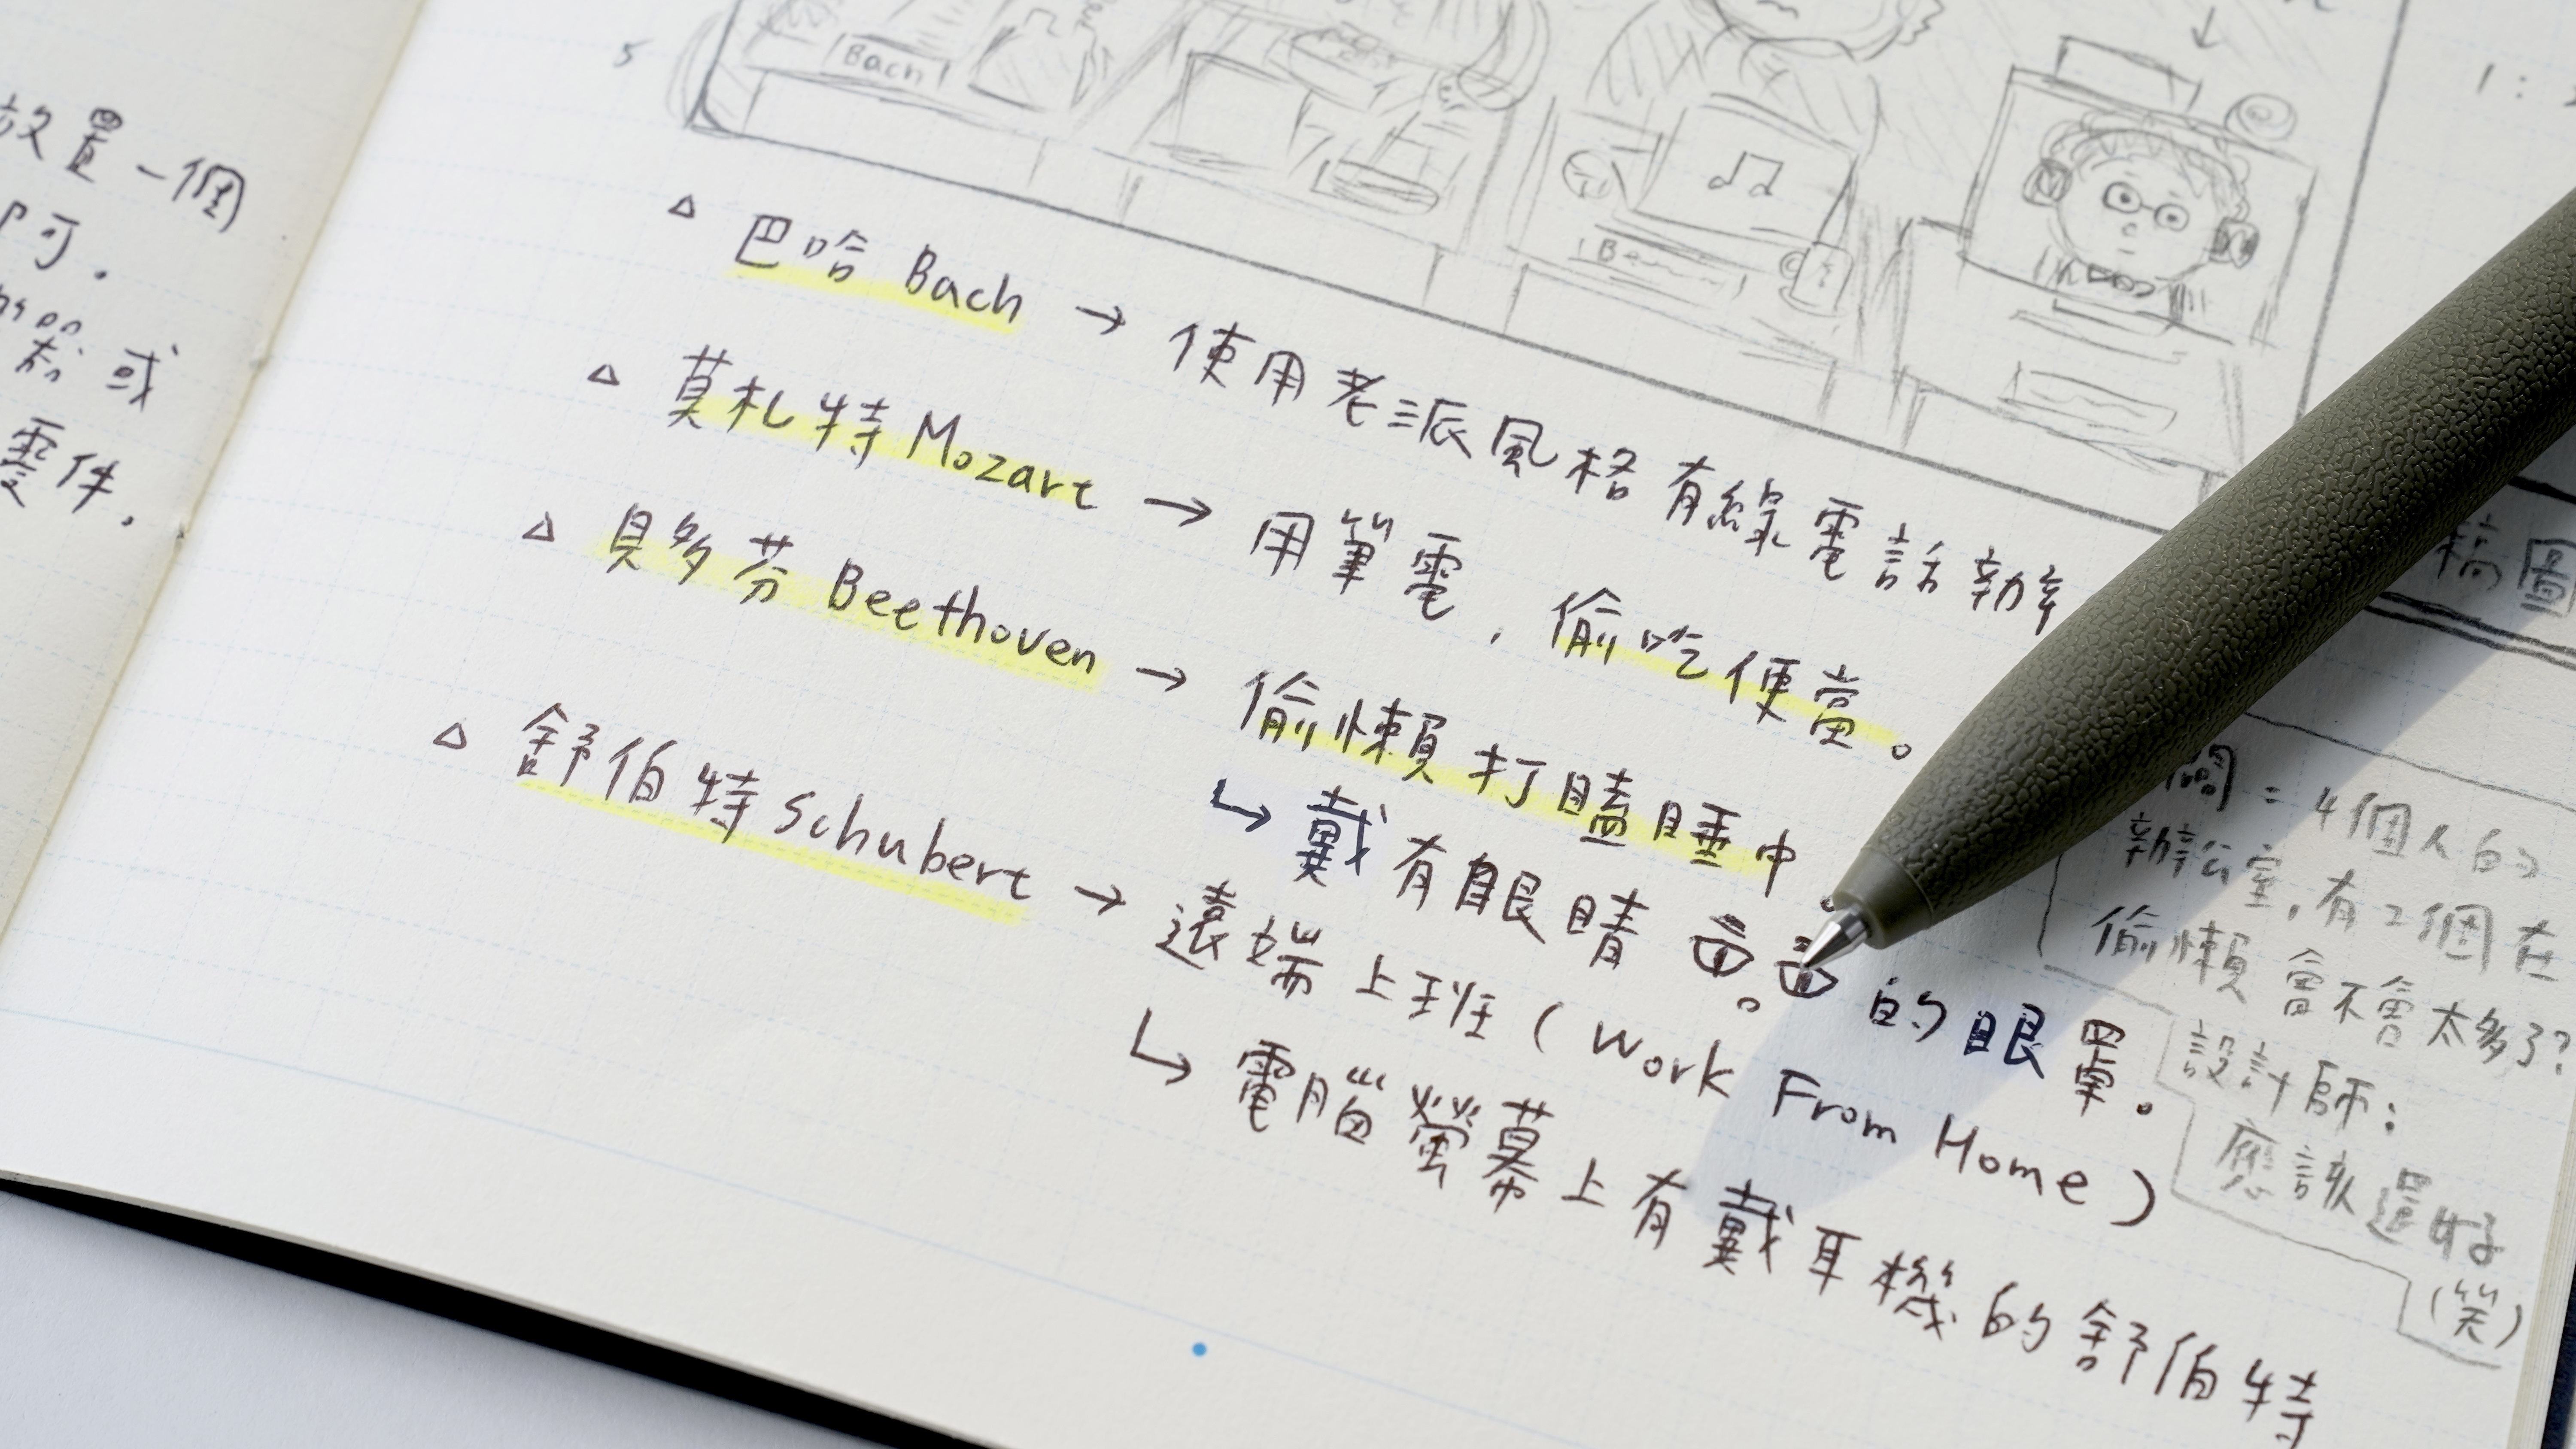 放置一個
阿.
器或
零件.
5
Bach
1:
△ 巴哈 Bach → 使用老派風格有線電話辦
△ 莫札特 Mozart → 用筆電,偷吃便當。
△ 貝多芬 Beethoven → 偷懶打瞌睡中。
↳ 戴有眼睛 的眼罩。
△ 舒伯特 Schubert → 遠端上班(Work From Home)。
↳ 電腦螢幕上有戴耳機的舒伯特
稿圖
闆:4個人的
辦公室,有2個在
偷懶會不會太多了?
設計師:
應該還好
(笑)